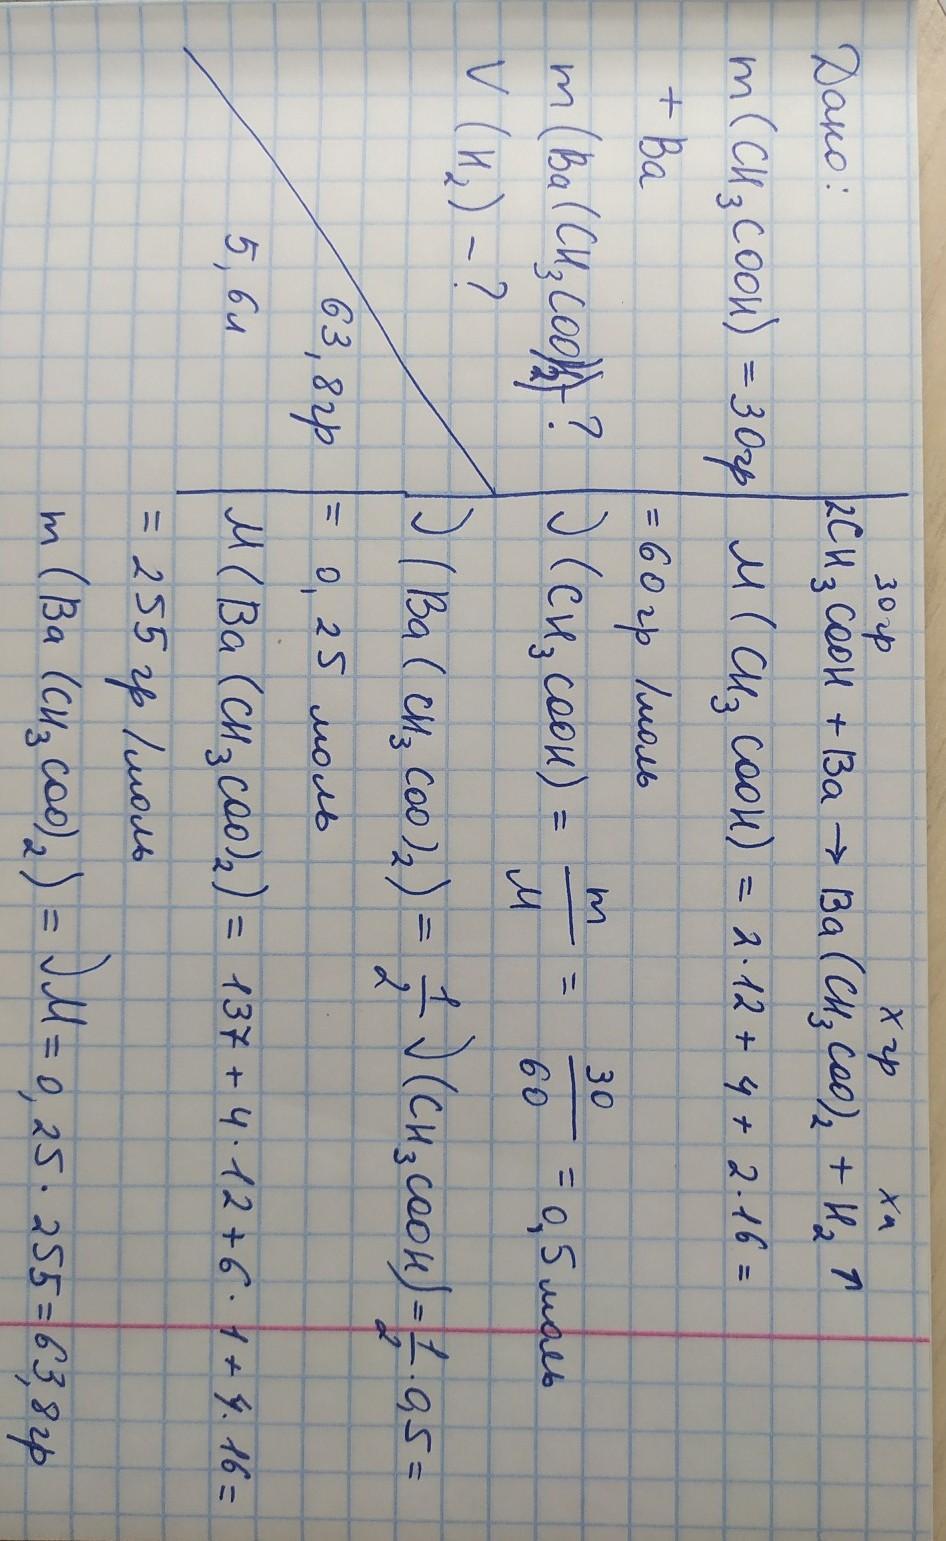 Дано:
m (CH₃COOH) = 30гр
+ Ba
m (Ba(CH₃COO)₂) - ?
V (H₂) - ?
63,8гр
5,6л
30гр хгр хл
2CH₃COOH + Ba → Ba(CH₃COO)₂ + H₂↑
M (CH₃COOH) = 2·12 + 4 + 2·16 =
= 60 гр/моль
ν (CH₃COOH) = m/M = 30/60 = 0,5 моль
ν (Ba(CH₃COO)₂) = 1/2 ν (CH₃COOH) = 1/2 · 0,5 =
= 0,25 моль
M (Ba(CH₃COO)₂) = 137 + 4·12 + 6·1 + 4·16 =
= 255 гр/моль
m (Ba(CH₃COO)₂) = νM = 0,25·255 = 63,8гр